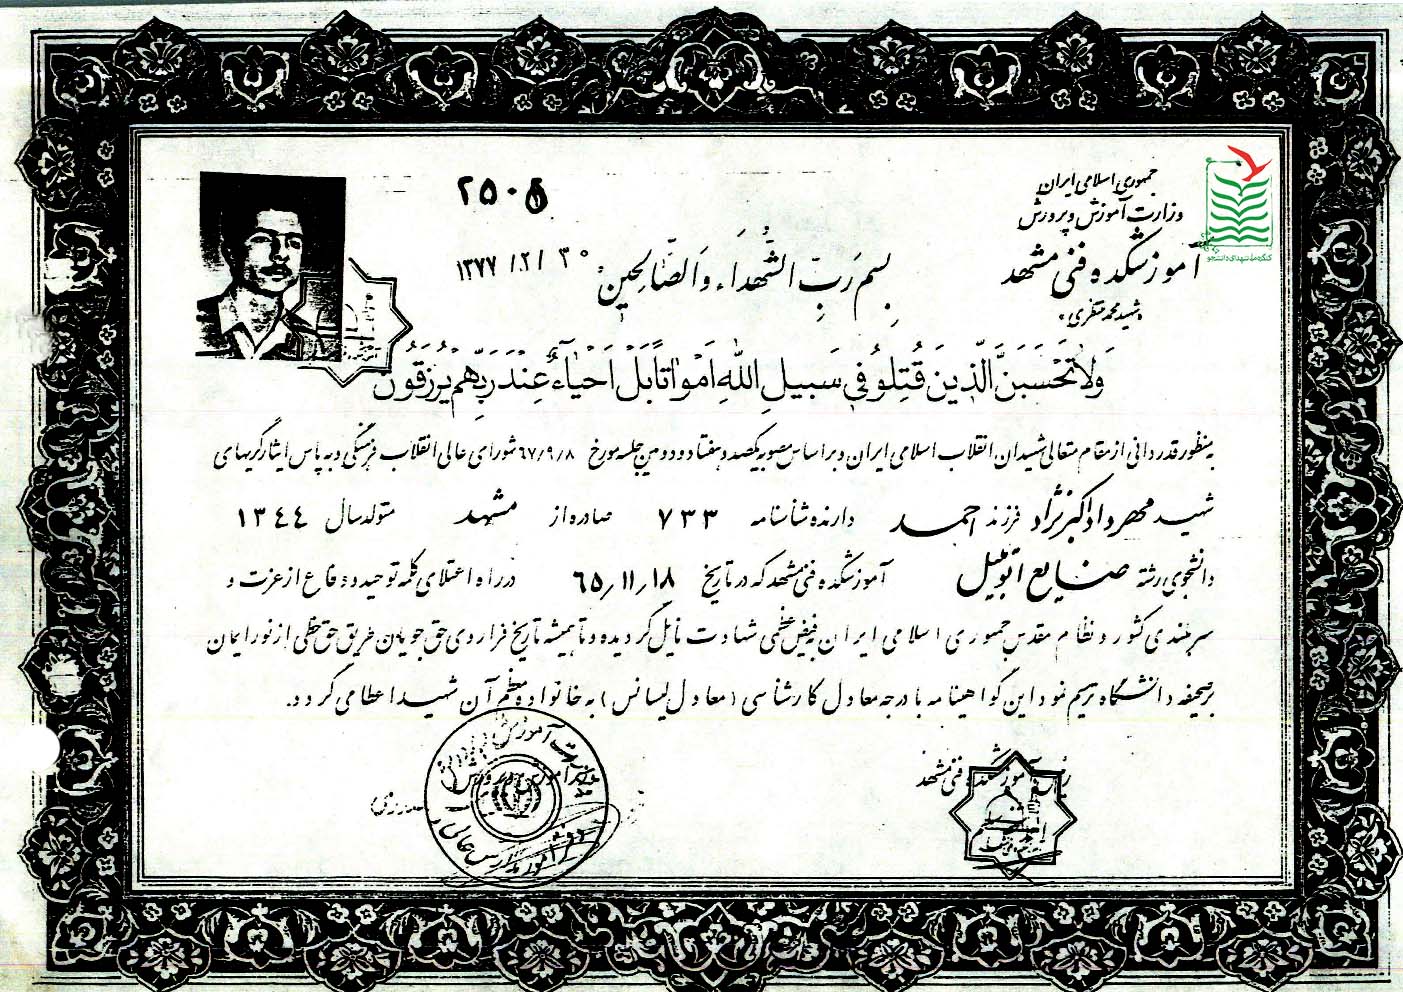 جمهوری اسلامی ایران
وزارت آموزش و پرورش
آموزشکده فنی مشهد
«شهید محمد منتظری»
کنگره ملی شهدای دانشجو
۲۵۰۵
۱۳۷۷/۲/۳۰
بِسمِ رَبِّ الشُّهَداءِ وَالصّالِحینَ
وَلا تَحْسَبَنَّ الَّذینَ قُتِلُو فی سَبیلِ اللهِ اَمْواتاً بَلْ اَحْیاءٌ عِنْدَ رَبِّهِمْ یُرْزَقُونَ
بمنظور قدردانی از مقام متعالی شهیدان انقلاب اسلامی ایران و بر اساس مصوبه یکصد و هفتاد و دومین جلسه مورخ ۶۷/۹/۸ شورای عالی انقلاب فرهنگی و به پاس ایثارگریهای
شهید مهرداد اکبرنژاد فرزند احمد دارنده شناسنامه ۷۳۳ صادره از مشهد متولد سال ۱۳۴۴
دانشجوی رشته صنایع اتومبیل آموزشکده فنی مشهد که در تاریخ ۶۵/۱۱/۱۸ در راه اعتلای کلمه توحید و دفاع از عزت و
سربلندی کشور و نظام مقدس جمهوری اسلامی ایران بفیض عظمی شهادت نایل گردیده و تا همیشه تاریخ فراروی حق جویان طریق حق خطی از نور ایمان
بر صحیفه دانشگاه ترسیم نمود این گواهینامه با درجه معادل کارشناسی (معادل لیسانس) به خانواده معظم آن شهید اعطا می گردد.
رئیس آموزشکده فنی مشهد
وزیر آموزش و پرورش